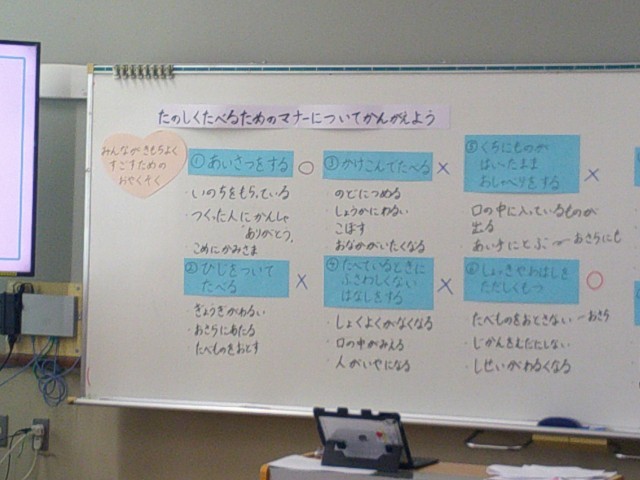 たのしくたべるためのマナーについてかんがえよう
みんながきもちよく
すごすための
おやくそく
①あいさつをする ○
・いのちをもらっている
・つくった人にかんしゃ
ありがとう。
・こめにかみさま
②ひじをついて
たべる ×
・ぎょうぎがわるい
・おさらにあたる
・たべものをおとす
③かけこんでたべる ×
・のどにつめる
・しょうかにわるい
・こぼす
・おなかがいたくなる
④たべているときに
ふさわしくない
はなしをする ×
・しょくよくがなくなる
・口の中がみえる
・人がいやになる
⑤くちにものが
はいったまま
おしゃべりをする ×
・口の中に入っているものが
出る
・あい手にとぶ ー おさらにも
⑥しょっきやおはしを
ただしくもつ ○
・たべものをおとさない ー おさら
・じかんをむだにしない
・しせいがわるくなる